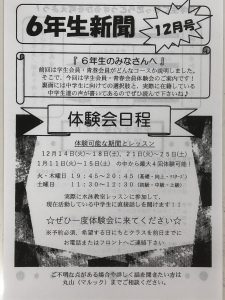 6年生新聞
12月号
『 6年生のみなさんへ 』
前回は学生会員・青春会員がどんなコースか説明しました。
そこで、今回は学生会員・青春会員体験会のご案内です！
裏面には中学生に向けての選択肢と、実際に在籍している
中学生達の声が書いてあるのでぜひ読んで下さいね♪
体験会日程
体験可能な期間とレッスン
12月14日(火)～18日(土)、21日(火)～25日(土)
1月11日(火)～15日(土) の中から最大4回体験可能！
火・木曜日：19：45～20：45（基礎・向上・マスターズ）
土曜日 ：11：30～12：30（初級・中級・上級）
実際に水泳教室レッスンに参加して、
現在活動している中学生に直接話しを聞けます！！
☆ぜひ一度体験会に来てください☆
※予約必須、希望する日にちとクラスを前日までに
お電話またはフロントへご連絡下さい
ご不明な点がある場合や詳しく話を聞きたい方は
丸山（マルック）までご相談ください。